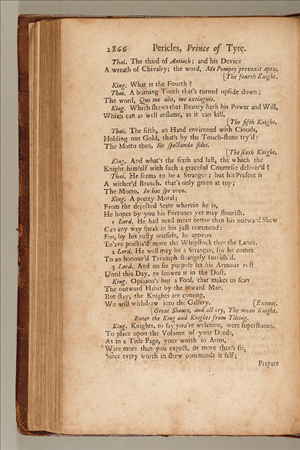 1866 Pericles, Prince of Tyre.
Thai. The third of Antioch; and his Device
A wreath of Chivalry; the word, Me Pompey provexit apex.
[The fourth Knight.
King. What is the Fourth?
Thai. A burning Torch that's turned upside down;
The word, Qui me alit, me extinguit.
King. Which shews that Beauty hath his Power and Will,
Which can as well enflame, as it can kill.
[The fifth Knight.
Thai. The fifth, an Hand environed with Clouds,
Holding out Gold, that's by the Touch-stone try'd:
The Motto thus, Sic spectanda fides.
[The sixth Knight.
King. And what's the sixth and last, the which the
Knight himself with such a graceful Courtesie deliver'd?
Thai. He seems to be a Stranger; but his Present is
A wither'd Branch, that's only green at top;
The Motto, In hac spe vivo.
King. A pretty Moral;
From the dejected State wherein he is,
He hopes by you his Fortunes yet may flourish.
1 Lord. He had need mean better than his outward Shew
Can any way speak in his just commend:
For, by his rusty outside, he appears
To'ave practis'd more the Whipstock than the Lance.
2 Lord. He well may be a Stranger, for he comes
To an honour'd Triumph strangely furnish'd.
3 Lord. And on set purpose let his Armour rust
Until this Day, to scowre it in the Dust.
King. Opinion's but a Fool, that makes us scan
The outward Habit by the inward Man.
But stay, the Knights are coming,
We will withdraw into the Gallery. [Exeunt.
[Great Shouts, and all cry, The mean Knight.
Enter the King and Knights from Tilting.
King. Knights, to say you're welcome, were superfluous.
To place upon the Volume of your Deeds,
As in a Title Page, your worth in Arms,
Were more than you expect, or more than's fit,
Since every worth in shew commends it self;
Prepare